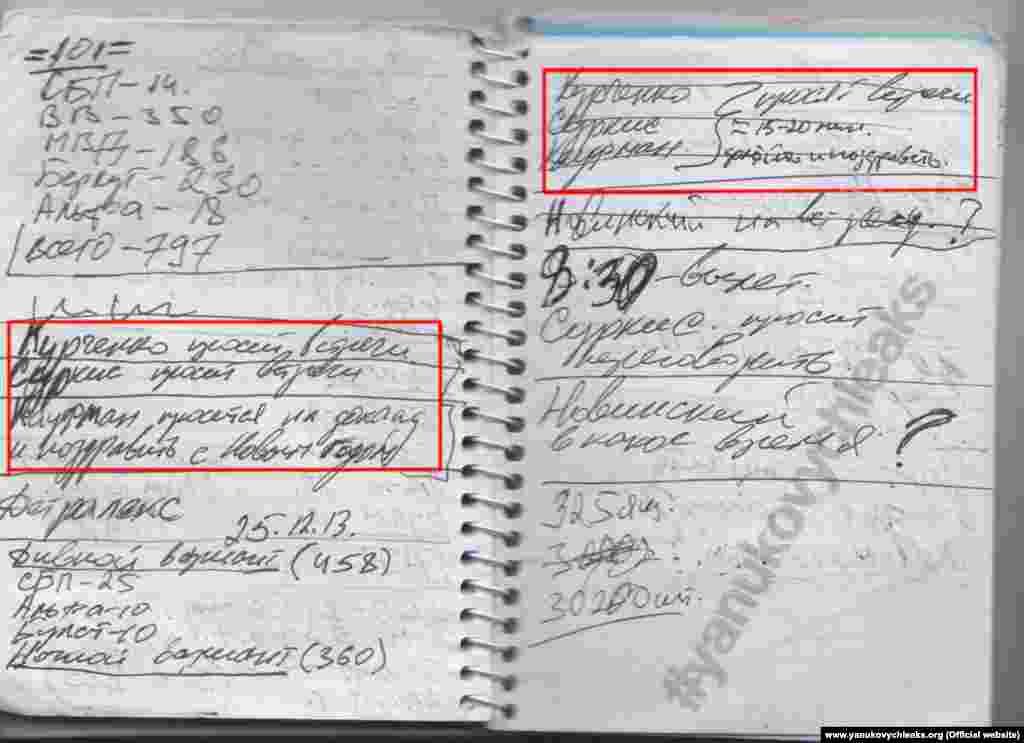 =101=
СБП-14.
ВВ-350
МВД-186
Беркут-230
Альфа-18
всего-797
Курченко просит встречи
Суркис просит встречи
Кауфман просится на доклад
и поздравить с Новым Годом
Детралекс
25.12.13.
Дневной вариант (458)
СБП-25
Альфа-10
Булат-10
Ночной вариант (360)
Курченко просит встречи
Суркис = 15-20 мин.
Кауфман и поздравить.
Новинский на встречу. ?
8:30-вылет.
Суркис. просит
переговорить.
Новинский
в какое время ?
325 ящ.
30200 шт.
#yanukovychleaks
www.yanukovychleaks.org (Official website)